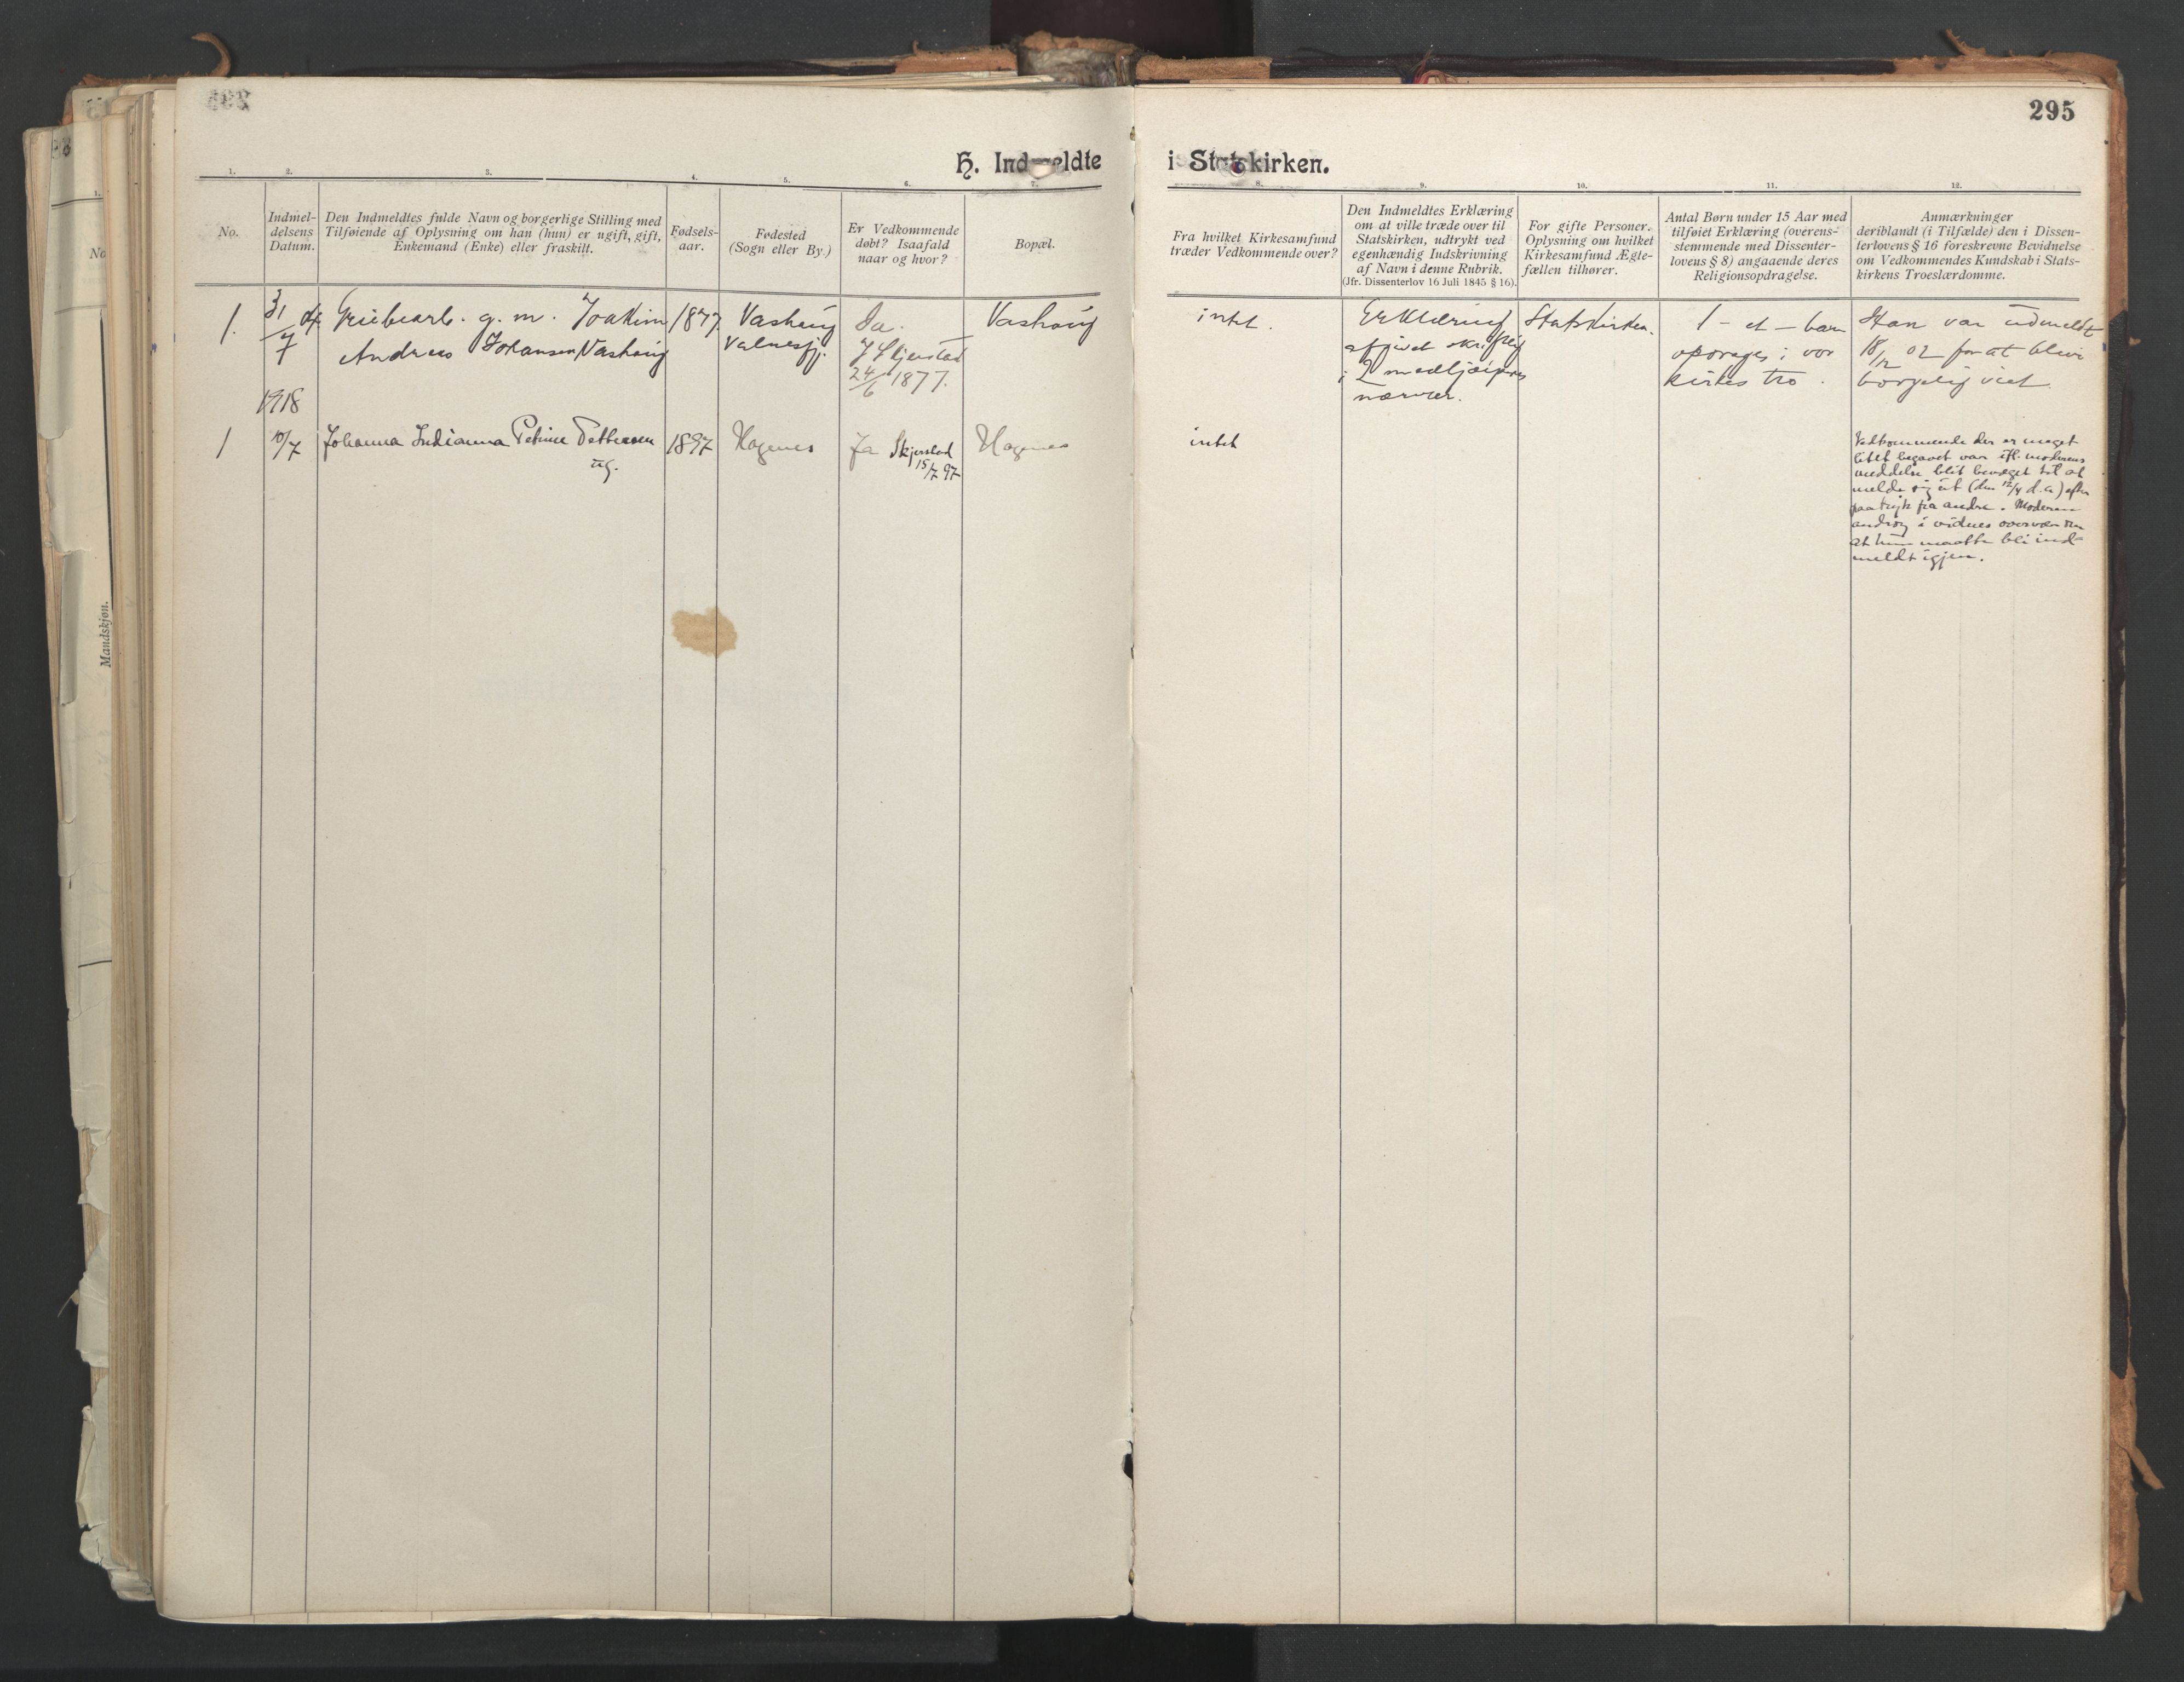 295
H. Indmeldte i Statskirken.
1. 2. 3. 4. 5. 6. 7. 8. 9. 10. 11. 12.
No.
Indmel-
delsens
Datum.
Den Indmeldtes fulde Navn og borgerlige Stilling med
Tilføiende af Oplysning om han (hun) er ugift, gift,
Enkemand (Enke) eller fraskilt.
Fødsels-
aar.
Fødested
(Sogn eller By.)
Er Vedkommende
døbt? Isaafald
naar og hvor?
Bopæl.
Fra hvilket Kirkesamfund
træder Vedkommende over?
Den Indmeldtes Erklæring
om at ville træde over til
Statskirken, udtrykt ved
egenhændig Indskrivning
af Navn i denne Rubrik.
(Jfr. Dissenterlov 16 Juli 1845 § 16).
For gifte Personer.
Oplysning om hvilket
Kirkesamfund Ægte-
fællen tilhører.
Antal Børn under 15 Aar med
tilføiet Erklæring (overens-
stemmende med Dissenter-
lovens § 8) angaaende deres
Religionsopdragelse.
Anmærkninger
deriblandt (i Tilfælde) den i Dissen-
terlovens § 16 foreskrevne Bevidnelse
om Vedkommendes Kundskab i Stats-
kirkens Troeslærdomme.
1.
31/7 07
Grubearb. g. m. Joakim
Andreas Johansen Vashaug
1877
Vashaug
Valnesfj.
Ja.
I Skjerstad
24/6 1877.
Vashaug
intet.
Erklæring
afgivet skriftlig
i 2 medhjælperes
nærvær.
Statskirken.
1 - et - barn
opdrages i vor
kirkes tro.
Han var udmeldt
18/12 02 for at blive
borgerlig viet.
1918
1
10/7
Johanna Indianna Petrine Pettersen
ug.
1897
Hagenes
Ja Skjerstad
15/7 97
Hagenes
intet
Vedkommende der er meget
litet begavet var ifl. moderens
meddelse blit bevæget til at
melde sig ut (den 12/4 d.a.) efter
paatryk fra andre. Moderen
androg i vidners overvær om
at hun maatte bli ind-
meldt igjen.
Mandskjøn.
No
1.